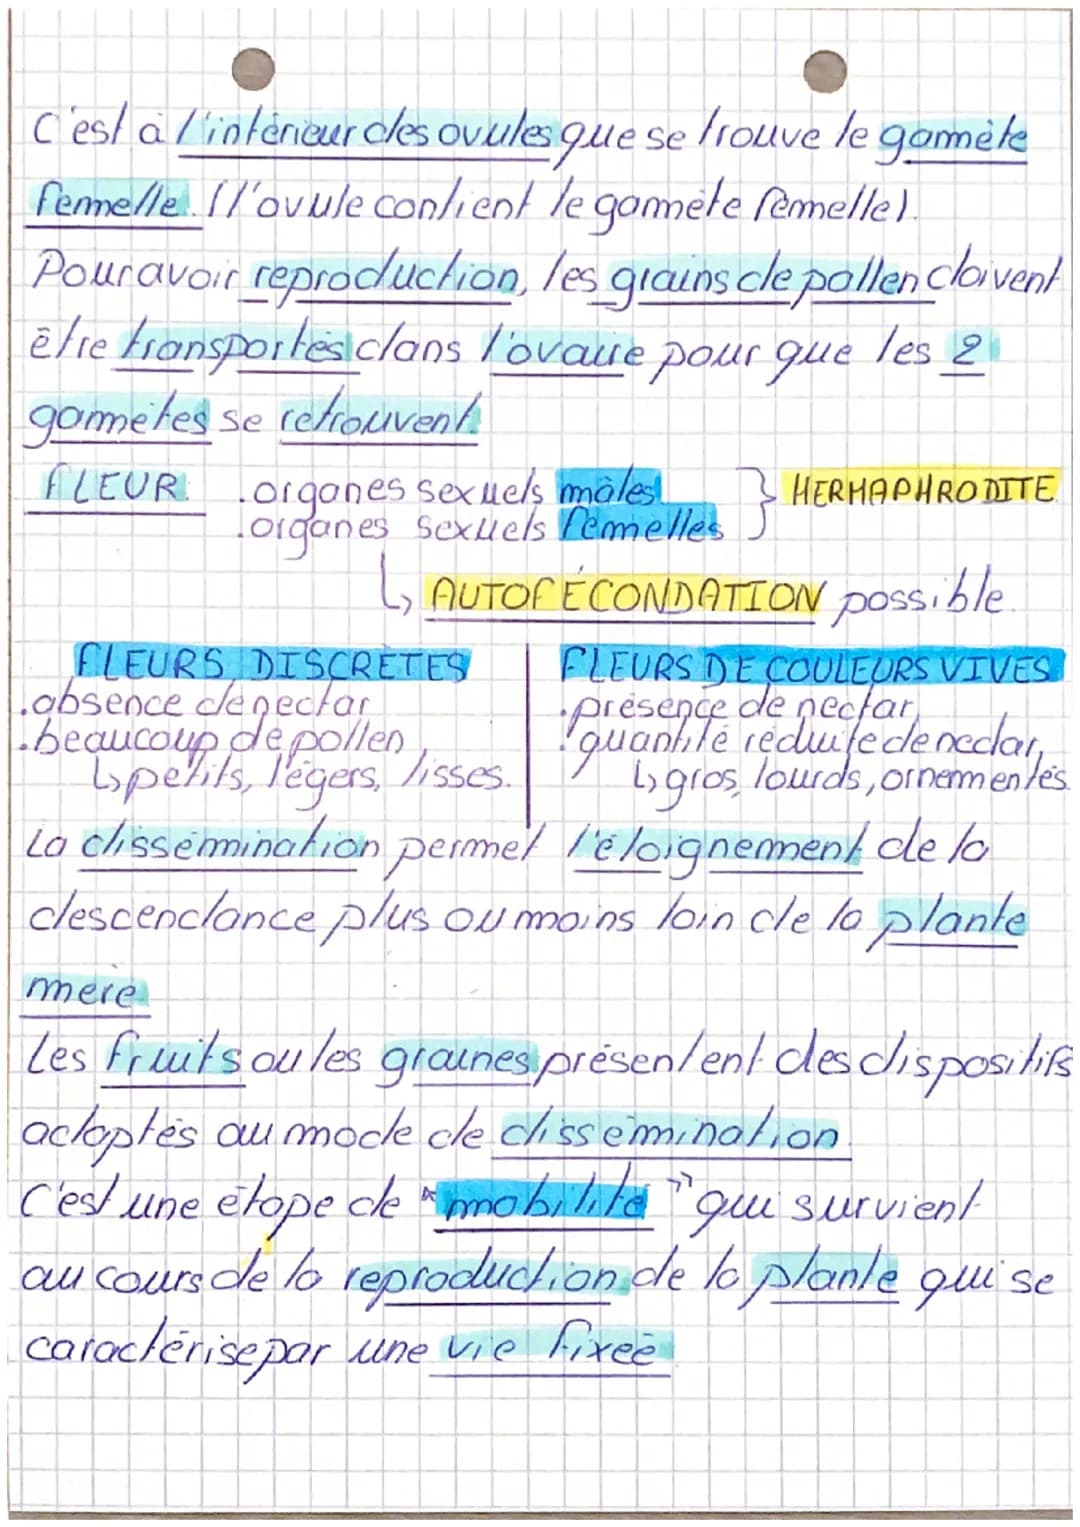 C'est à l'intérieur des ovules que se trouve le gamète
femelle. (l'ovule contient le gamète femelle).
Pour avoir reproduction, les grains de pollen doivent
être transportés dans l'ovaire pour que les 2
gamètes se retrouvent.
FLEUR. .organes sexuels mâles } HERMAPHRODITE.
.organes sexuels femelles
↳ AUTOFÉCONDATION possible.
FLEURS DISCRÈTES
.absence de nectar
.beaucoup de pollen,
↳ petits, légers, lisses.
FLEURS DE COULEURS VIVES
.présence de nectar,
.quantité réduite de nectar,
↳ gros, lourds, ornementés.
La dissémination permet l'éloignement de la
descendance plus ou moins loin de la plante
mère.
Les fruits ou les graines présentent des dispositifs
adaptés au mode de dissémination.
C'est une étape de "mobilité" qui survient
au cours de la reproduction de la plante qui se
caractérise par une vie fixée